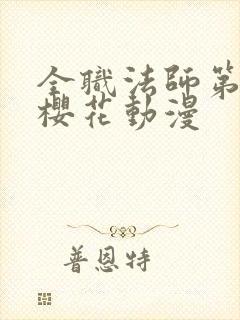 全職法師第
櫻花動漫
普恩特